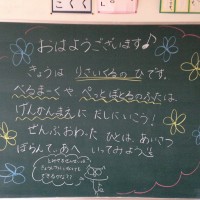 こくご
おはようございます♪
きょうは りさいくるの ひです。
べるまーくや ぺっとぼとるのふたは、
げんかんまえに だしにいこう!
ぜんぶおわった ひとは、あいさつ
ぼらんてぃあへ いってみよう!!